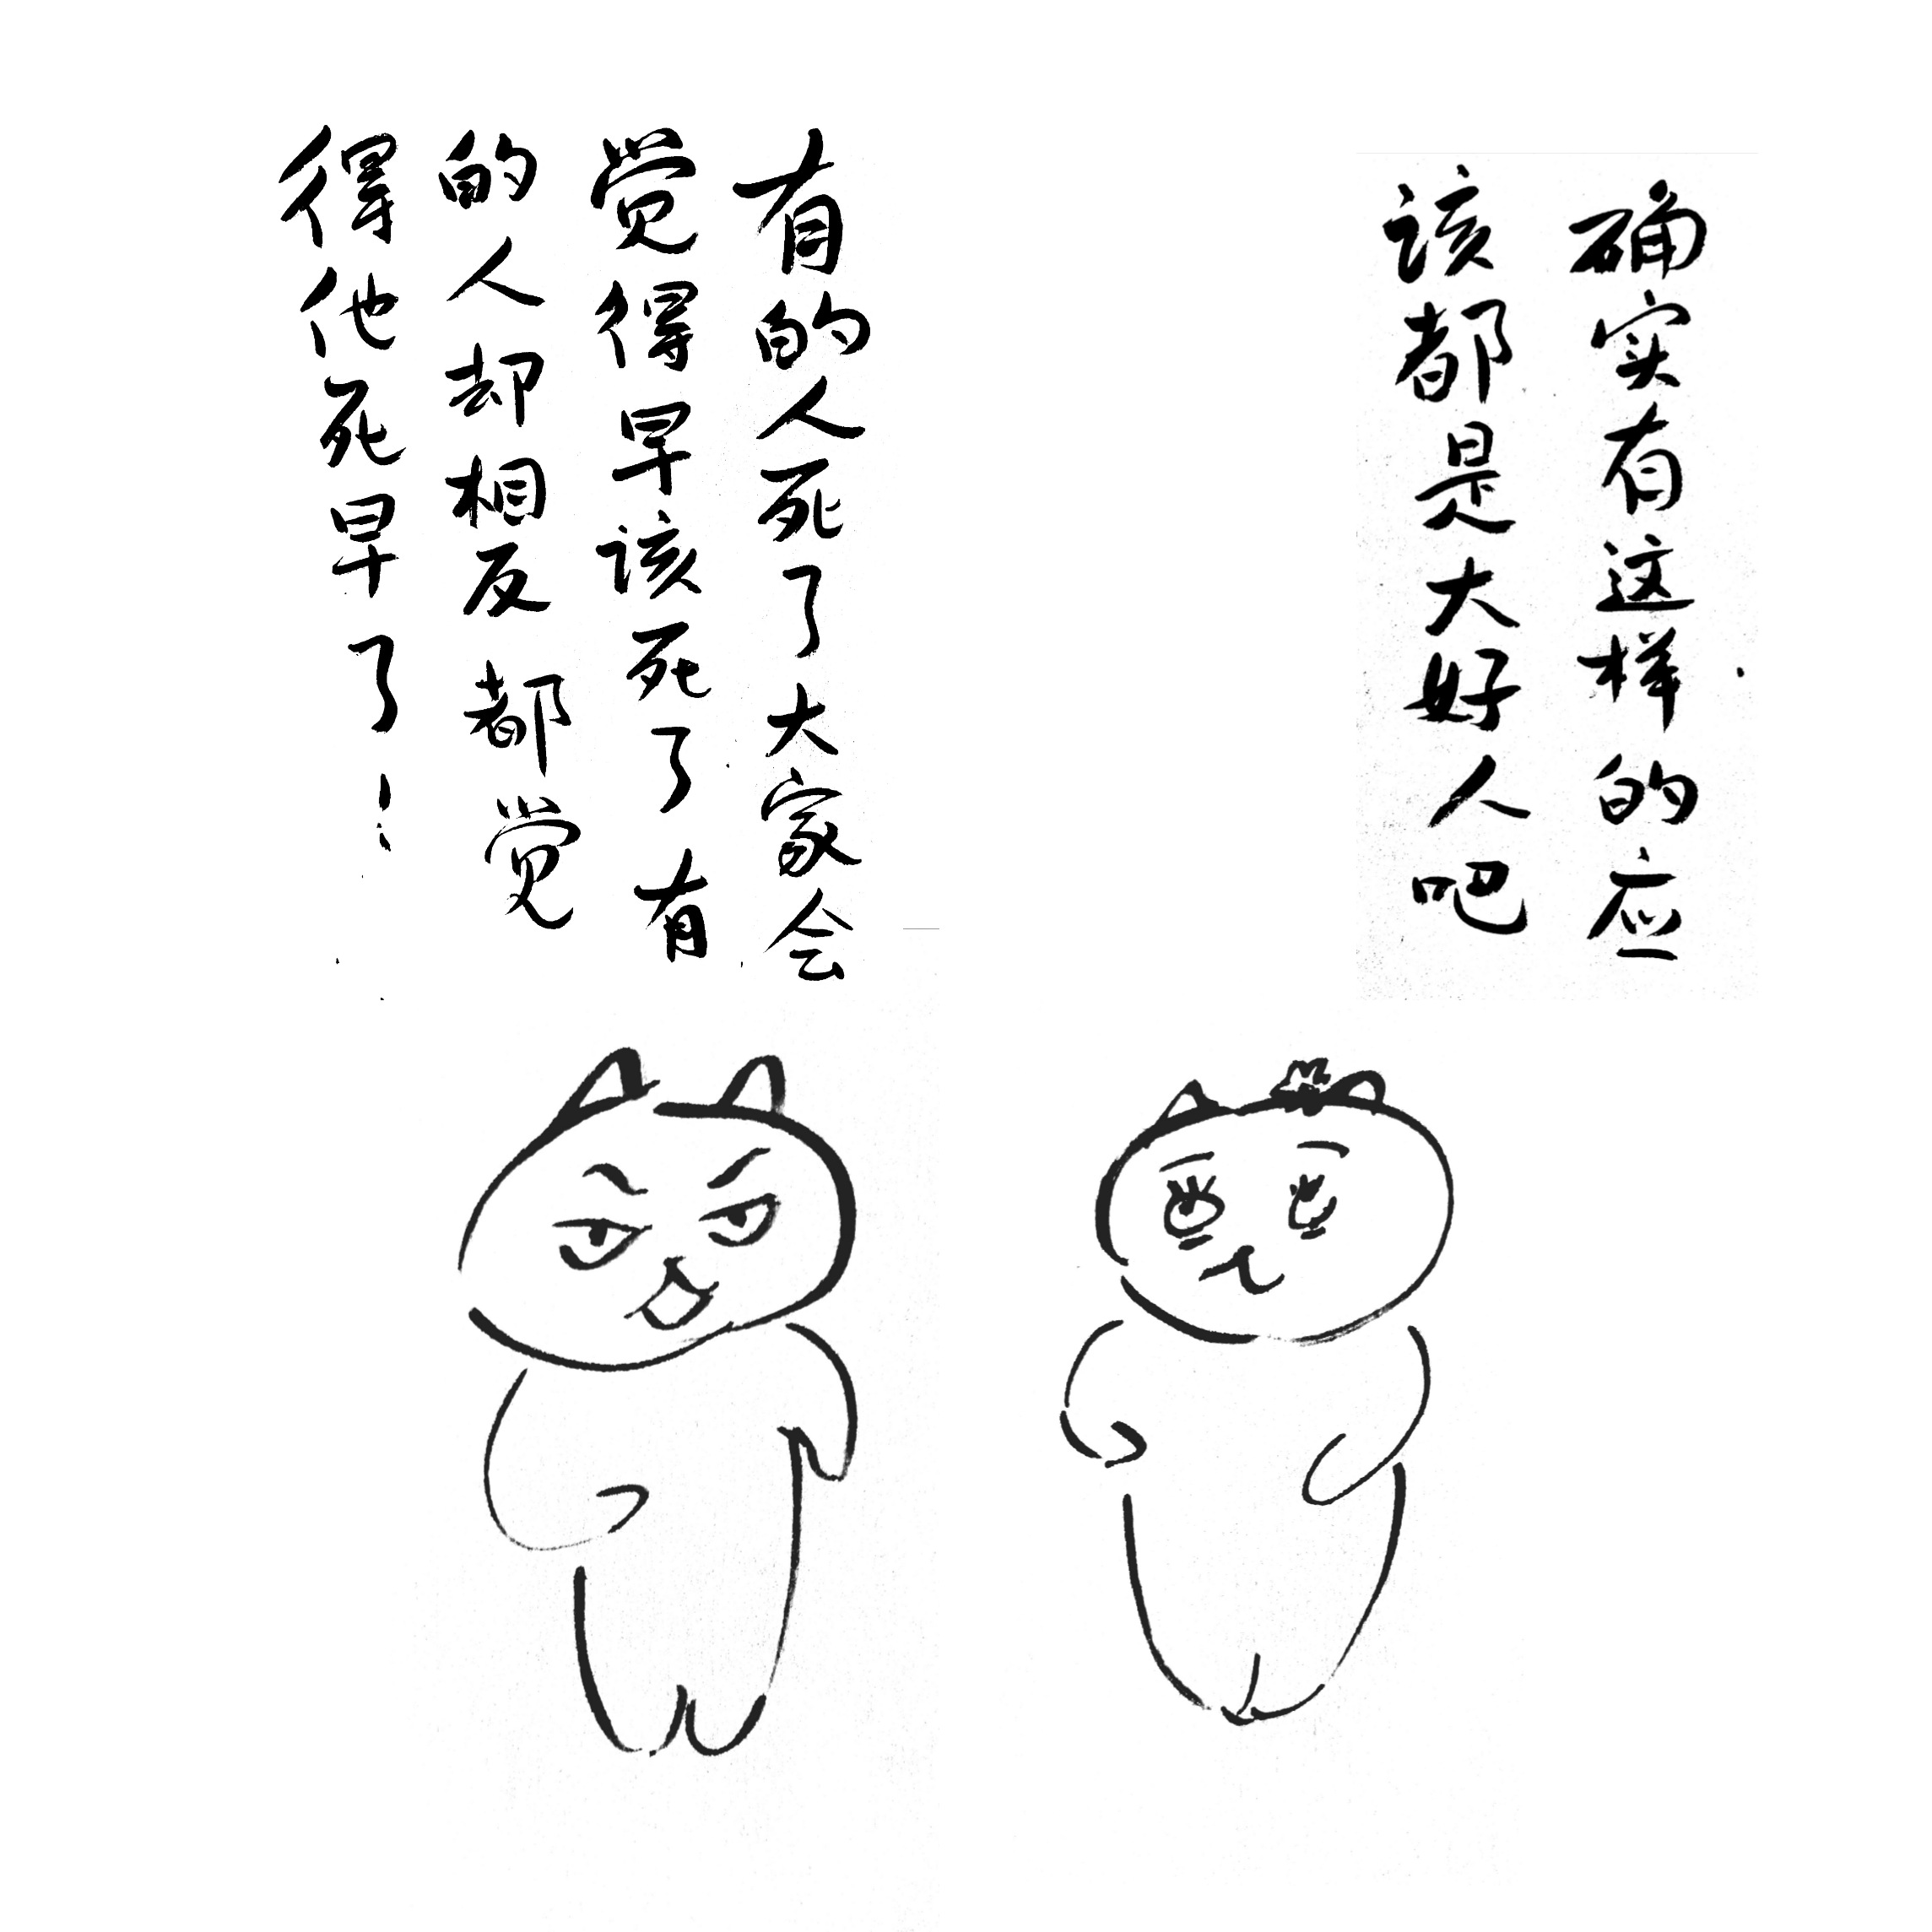 有的人死了大家会
觉得早该死了有
的人却相反都觉
得他死早了！
确实有这样的应
该都是大好人吧